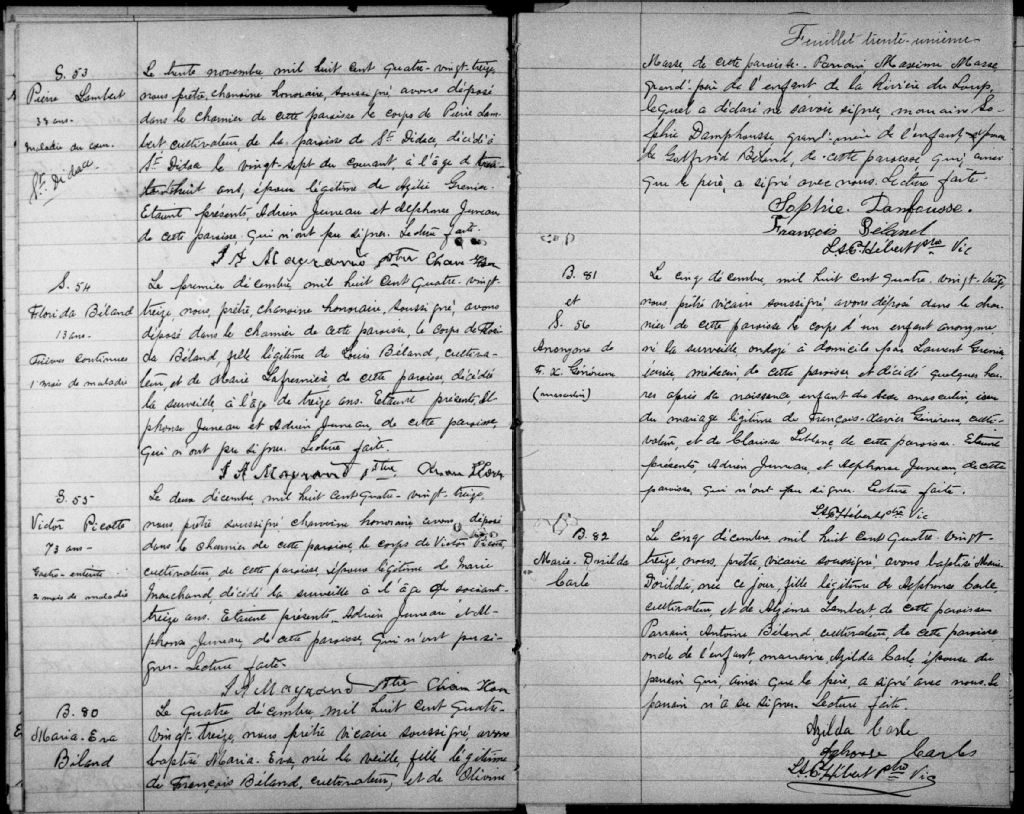 S. 53
Pierre Lambert
38 ans.
Maladie du coeur.
St. Didace
Le trente novembre mil huit cent quatre-vingt-treize,
nous prêtre, chanoine honoraire, soussigné avons déposé
dans le charnier de cette paroisse le corps de Pierre Lam-
bert cultivateur de la paroisse de St. Didace, décédé à
St. Didace le vingt-sept du courant, à l'âge de tren-
te-huit ans, époux légitime de Azilée Grenier.
Etaient présents, Adrien Juneau et Alphonse Juneau
de cette paroisse, qui n'ont pu signer. Lecture faite.
J A Mayrand ptre Chan Hon
S. 54
Florida Béland
13 ans.
Fièvres continues
1 mois de maladie
Le premier décembre, mil huit cent quatre-vingt-
treize, nous, prêtre, chanoine honoraire, soussigné, avons
déposé dans le charnier de cette paroisse, le corps de Flori-
da Béland, fille légitime de Louis Béland, cultiva-
teur, et de Marie Lafrenière, de cette paroisse, décédée
la surveille, à l'âge de treize ans. Etaient présents, Al-
phonse Juneau et Adrien Juneau, de cette paroisse,
qui n'ont pu signer. Lecture faite.
J A Mayrand ptre Chan Hon
S. 55
Victor Picotte
73 ans-
Gastro-entérite
2 mois de maladie
Le deux décembre, mil huit cent quatre-vingt-treize,
nous, prêtre soussigné chanoine honoraire avons déposé
dans le charnier de cette paroisse, le corps de Victor Picotte,
cultivateur, de cette paroisse, époux légitime de Marie
Marchand, décédé la surveille à l'âge de soixante-
treize ans. Etaient présents, Adrien Juneau et Al-
phonse Juneau, de cette paroisse, qui n'ont pu si-
gner. Lecture faite.
J A Mayrand ptre Chan Hon
B. 80
Maria-Eva
Béland
Le quatre décembre mil huit cent quatre-
vingt-treize, nous prêtre vicaire soussigné, avons
baptisé Maria-Eva, née la veille, fille légitime
de François Béland, cultivateur, et de Olivine
Feuillet trente-unième
Masse, de cette paroisse. Parrain Maxime Masse,
grand-père de l'enfant de la Rivière du Loup,
lequel a déclaré ne savoir signer, marraine So-
phie Damphousse, grand-mère de l'enfant
de Godfroid Béland, de cette paroisse qui, ainsi
que le père, a signé avec nous. Lecture faite.
Sophie Damfousse.
François Béland
L.A.C. Hébert ptre Vic
B. 81
et
S. 56
Anonyme de
F. X. Généreux
(masculin)
Le cinq décembre, mil huit cent quatre-vingt-treize,
nous prêtre vicaire soussigné, avons déposé dans le char-
nier de cette paroisse le corps d'un enfant anonyme
né la surveille, ondoyé à domicile par Laurent
médecin, de cette paroisse et décédé quelques heu-
res après sa naissance enfant du sexe masculin issu
du mariage légitime de François-Xavier Généreux, culti-
vateur, et de Clarisse Leblanc de cette paroisse. Etaient
présents, Adrien Juneau, et Alphonse Juneau, de cette
paroisse, qui n'ont pu signer. Lecture faite.
L.A.C. Hébert ptre Vic
B. 82
Marie-Dorilda
Carle
Le cinq décembre, mil huit cent quatre-vingt-
treize, nous, prêtre, vicaire soussigné, avons baptisé Marie
Dorilda, née ce jour, fille légitime de Alphonse Carle,
cultivateur, et de Lambert de cette paroisse.
Parrain, Antoine Béland cultivateur, de cette paroisse
oncle de l'enfant, marraine, Azilda Carle épouse du
parrain qui, ainsi que le père, a signé avec nous. Le
parrain n'a su signer. Lecture faite.
Azilda Carle
Alphonse Carle
L.A.C. Hébert ptre Vic